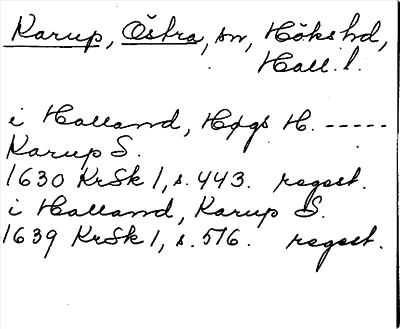 Karup, Östra, sn, Höks hd,
Hall. l.
i Halland, Høgs H. -----
Karup S.
1630 KrSk 1, s. 443. regest.
i Halland, Karup S.
1639 KrSk 1, s. 576. regest.